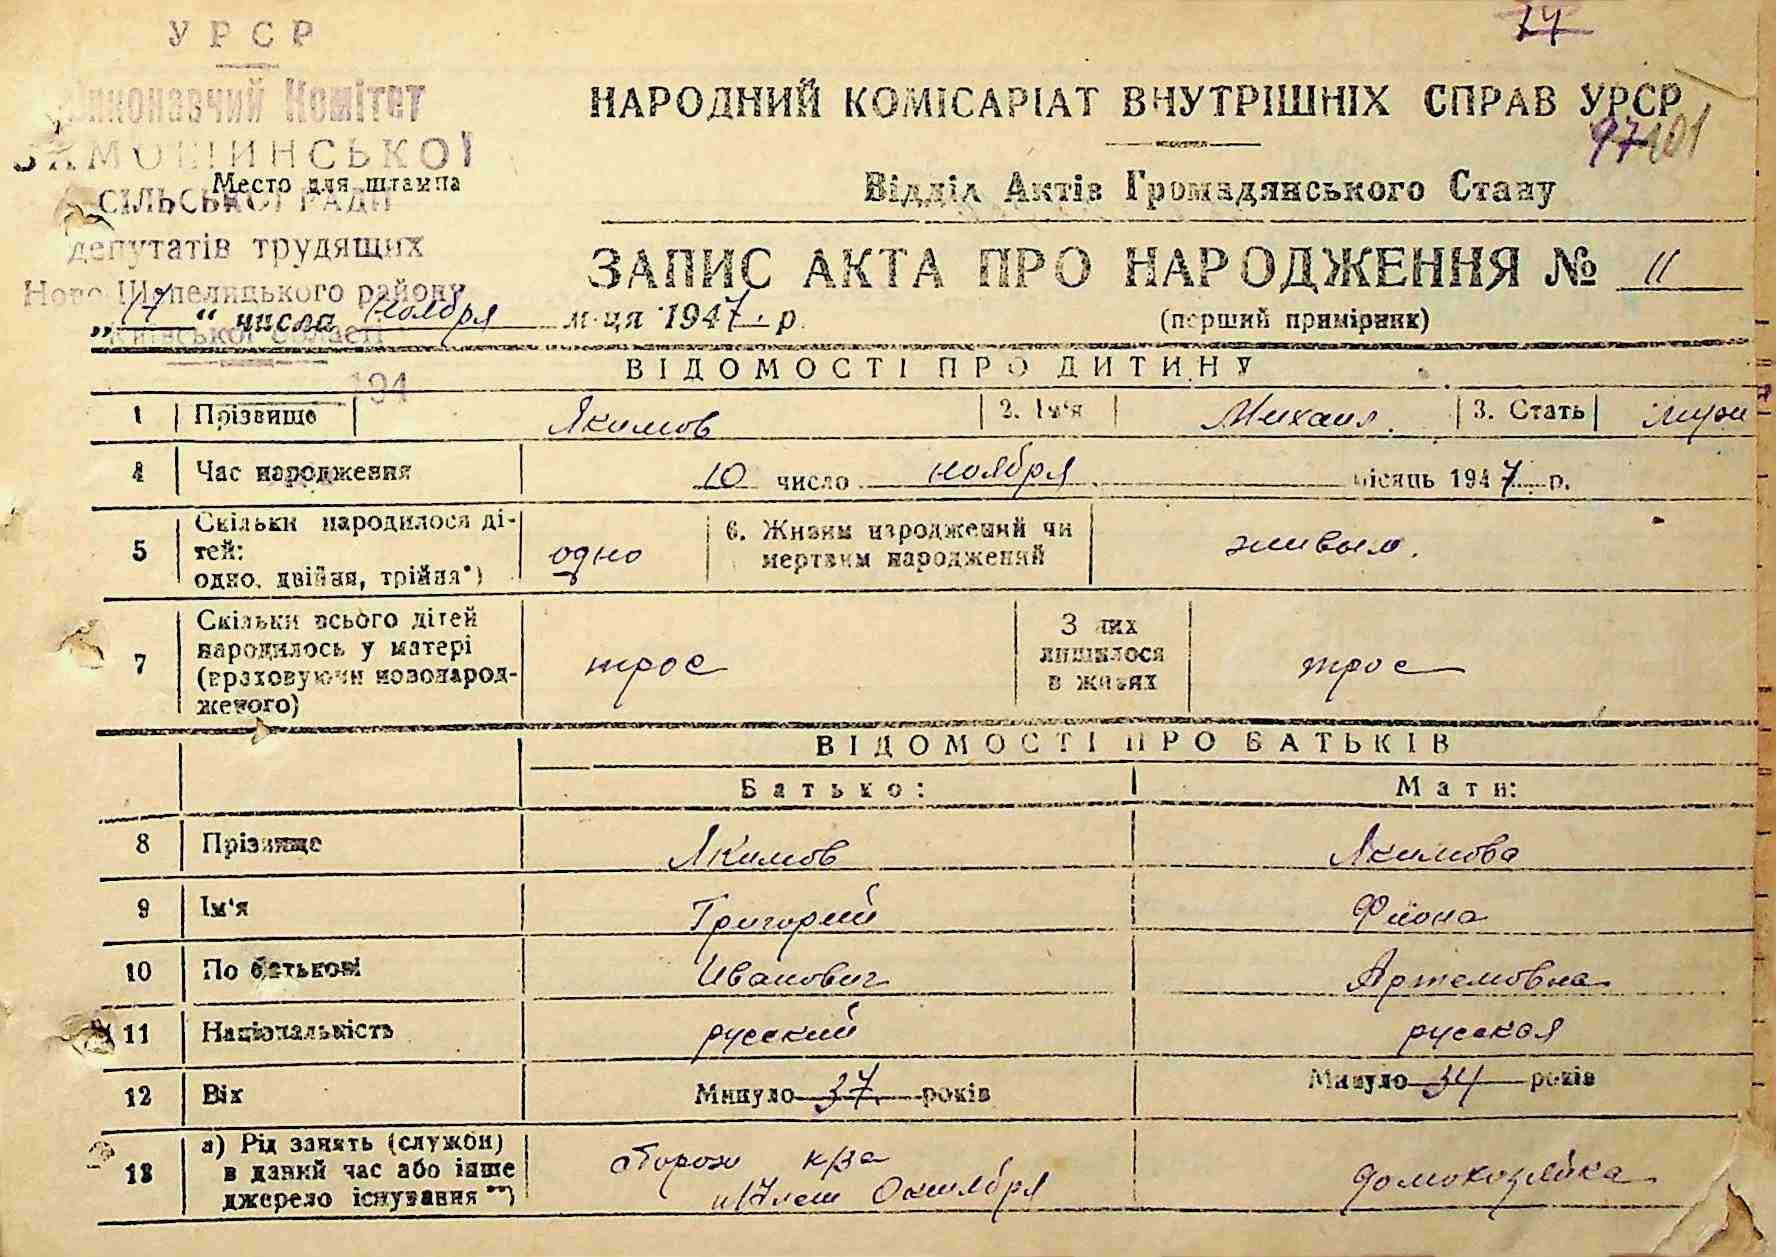 УРСР
Виконавчий Комітет
ЗАМОШИНСЬКОЇ
Место для штампа
СІЛЬСЬКОЇ РАДИ
депутатів трудящих
Ново-Шепелицького району
Київської області
194
74
НАРОДНИЙ КОМІСАРІАТ ВНУТРІШНІХ СПРАВ УРСР
97 101
Відділ Актів Громадянського Стану
ЗАПИС АКТА ПРО НАРОДЖЕННЯ № 11
„17“ числа Ноября м-ця 1947. р.
(перший примірник)
ВІДОМОСТІ ПРО ДИТИНУ
1 Прізвище Якимов 2. Ім'я Михаил. 3. Стать муж
4 Час народження 10 число ноября місяць 1947 р.
5 Скільки народилося ді-
тей:
одно, двійня, трійня*)
одно
6. Живим народжений чи
мертвим народжений
живым.
7 Скільки всього дітей
народилось у матері
(враховуючи новонарод-
женого)
трое
З них
лишилося
в живих
трое
ВІДОМОСТІ ПРО БАТЬКІВ
Батько: Мати:
8 Прізвище Якимов Якимова
9 Ім'я Григорий Фиона
10 По батькові Иванович Артемовна
11 Національність русский русская
12 Вік Минуло 37 років Минуло 34 років
13 а) Рід занять (служби)
в даний час або інше
джерело існування**)
сторож к/за
и/17 лет Октября
домохозяйка